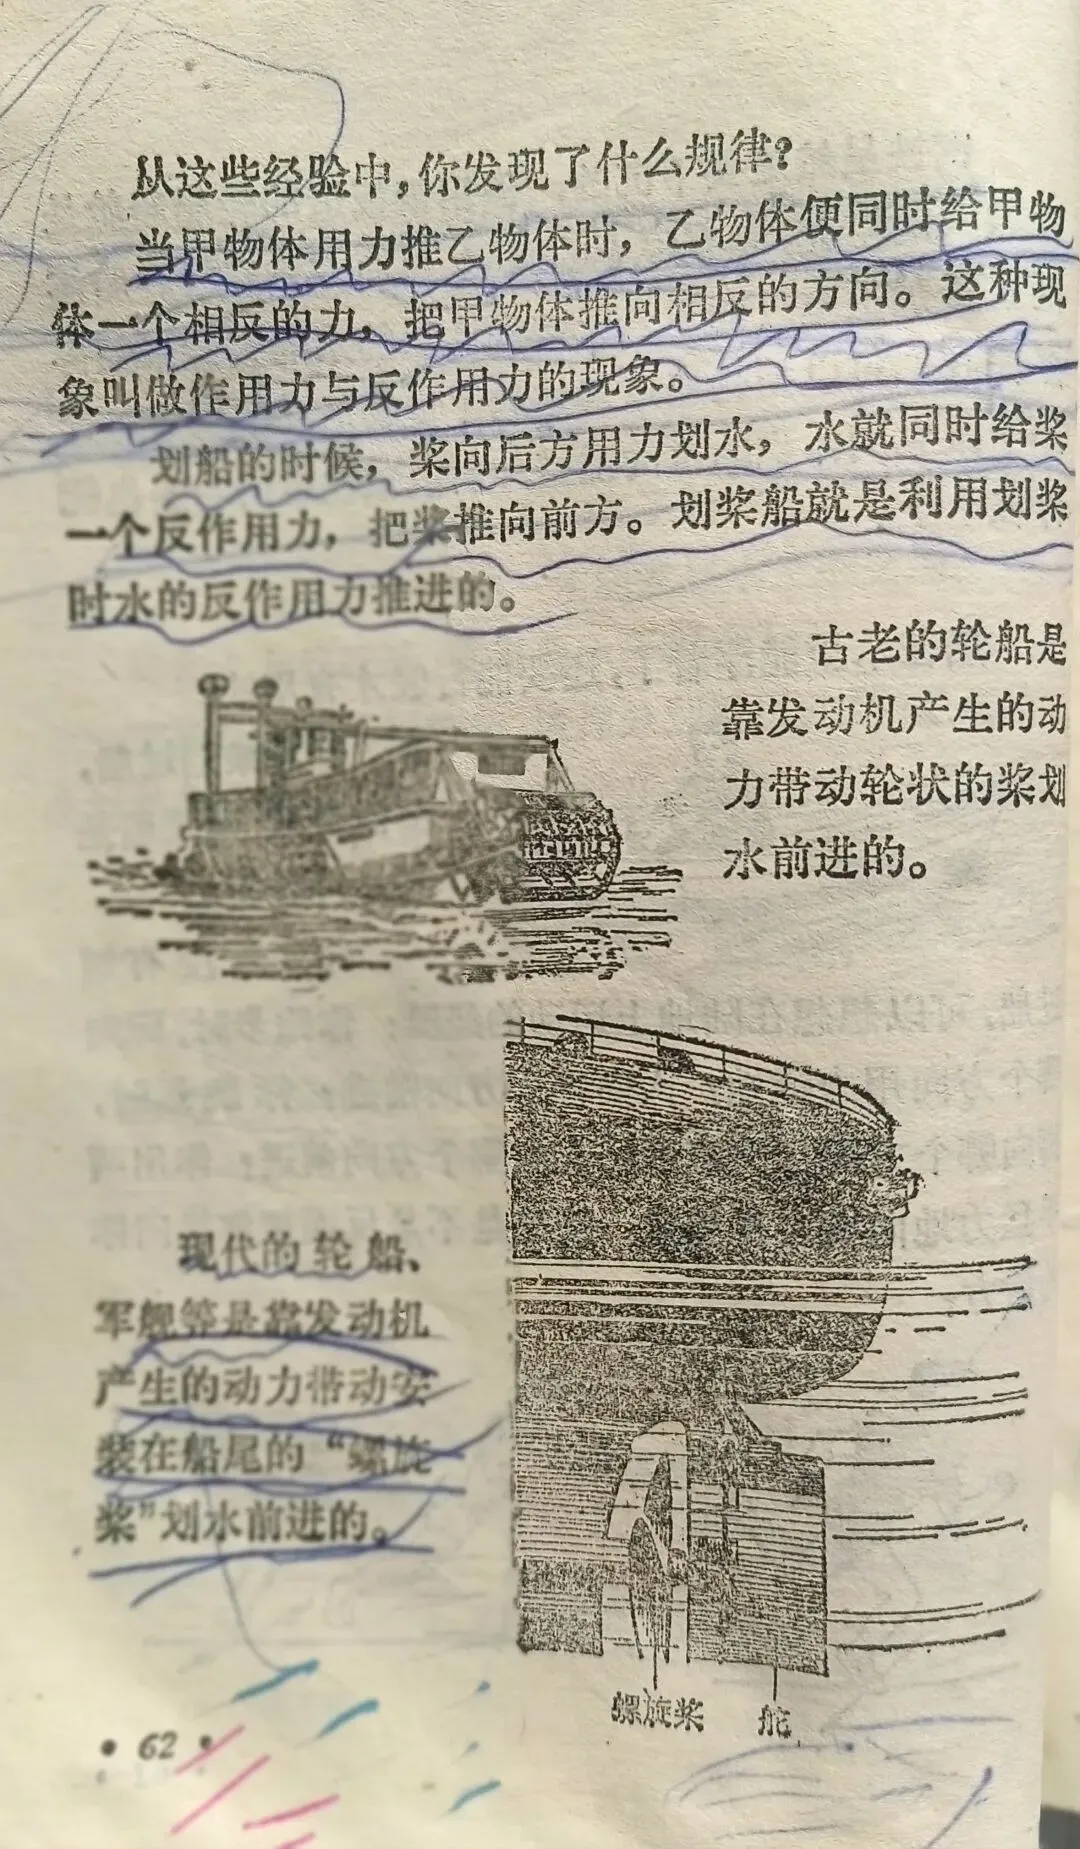 从这些经验中，你发现了什么规律？
当甲物体用力推乙物体时，乙物体便同时给甲物
体一个相反的力，把甲物体推向相反的方向。这种现
象叫做作用力与反作用力的现象。
划船的时候，桨向后方用力划水，水就同时给桨
一个反作用力，把桨推向前方。划桨船就是利用划桨
时水的反作用力推进的。
古老的轮船是
靠发动机产生的动
力带动轮状的桨划
水前进的。
现代的轮船、
军舰等是靠发动机
产生的动力带动安
装在船尾的“螺旋
桨”划水前进的。
螺旋桨 舵
• 62 •